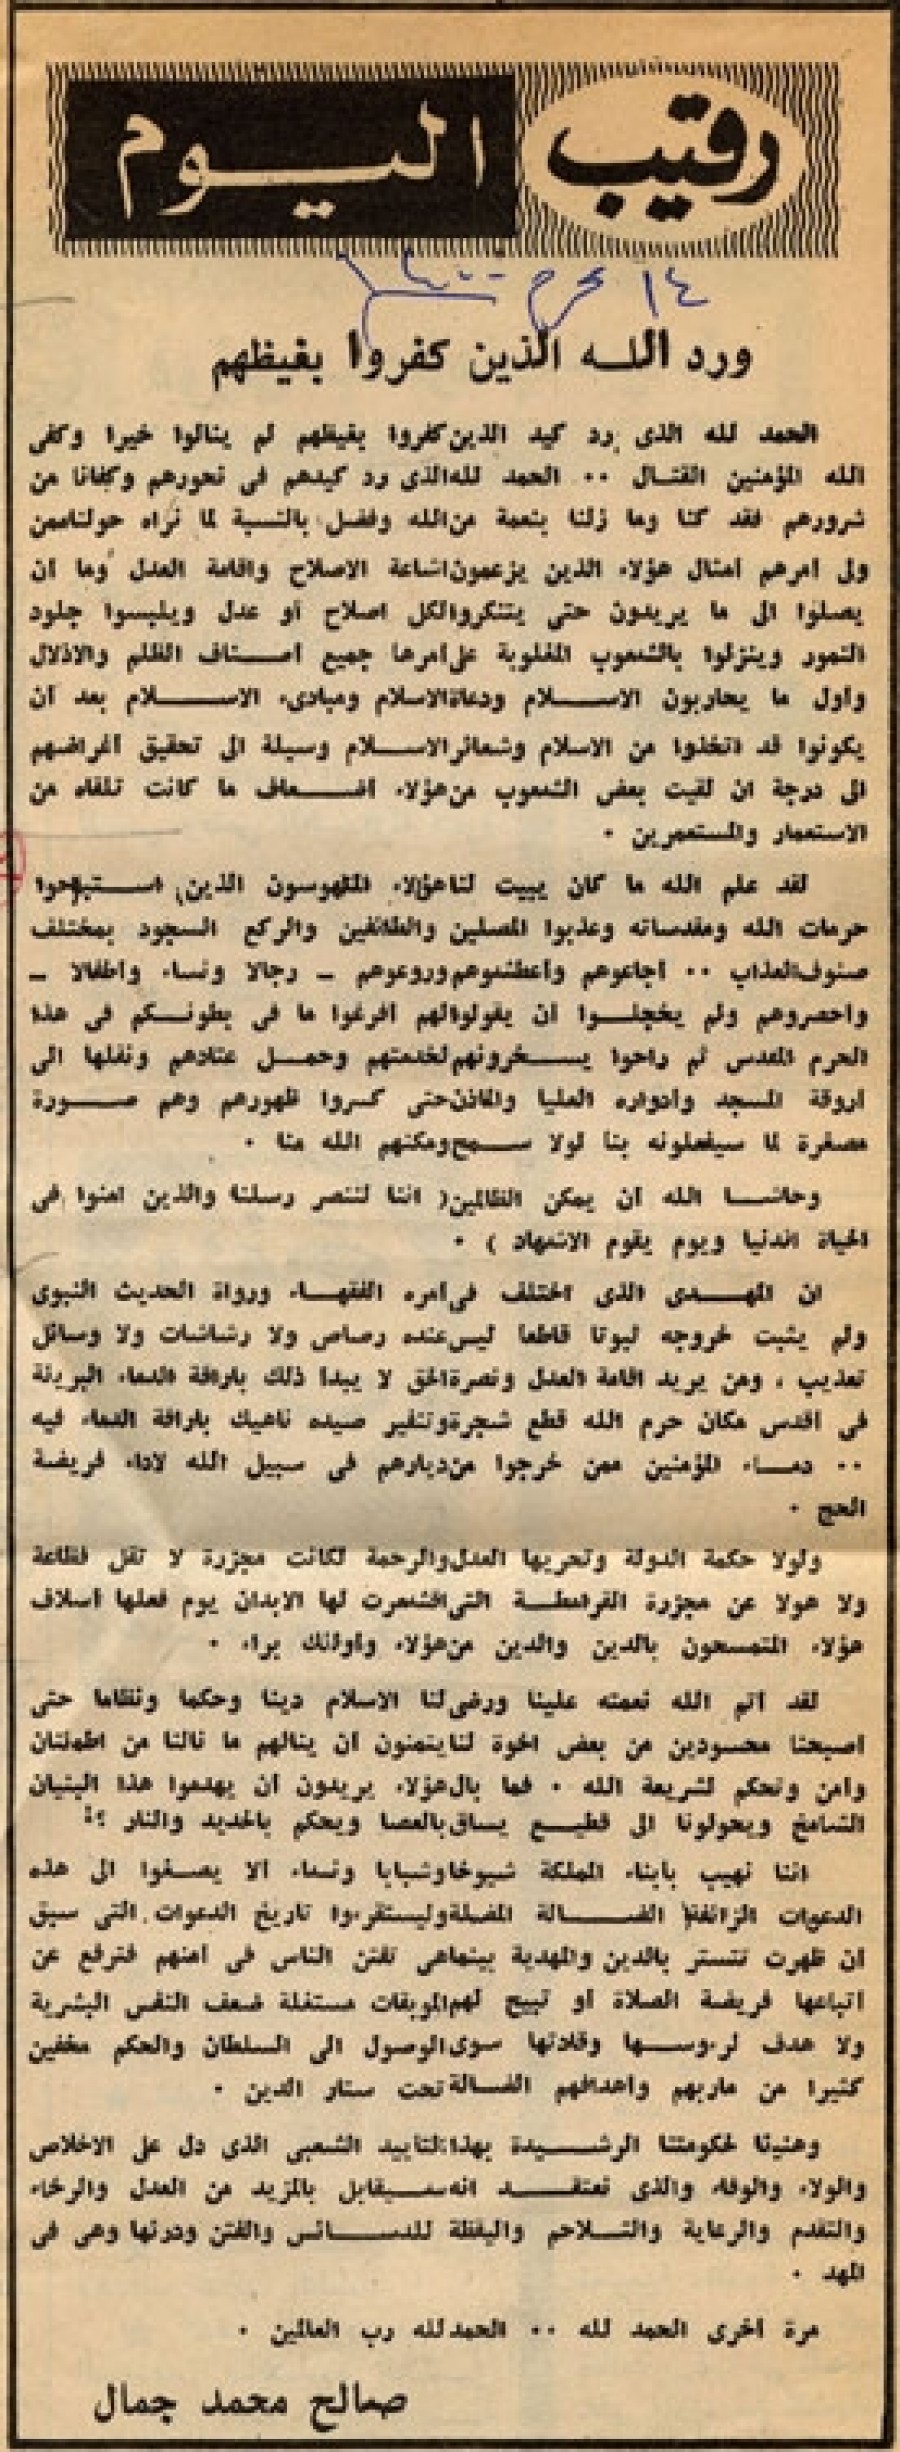 رقيب اليوم
١٤ محرم ١٤٠٠
ورد الله الذين كفروا بغيظهم
الحمد لله الذى رد كيد الذين كفروا بغيظهم لم ينالوا خيرا وكفى
الله المؤمنين القتال ٠٠ الحمد لله الذى رد كيدهم فى نحورهم وكفانا من
شرورهم فقد كنا وما زلنا بنعمة من الله وفضل بالنسبة لما نراه حولنا ممن
ولى أمرهم أمثال هؤلاء الذين يزعمون اشاعة الاصلاح واقامة العدل وما أن
يصلوا الى ما يريدون حتى يتنكروا لكل اصلاح أو عدل ويلبسوا جلود
النمور وينزلوا بالشعوب المغلوبة على أمرها جميع أصناف الظلم والاذلال
وأول ما يحاربون الاسلام ودعاة الاسلام ومبادىء الاسلام بعد أن
يكونوا قد اتخذوا من الاسلام وشعائر الاسلام وسيلة الى تحقيق أغراضهم
الى درجة ان لقيت بعض الشعوب من هؤلاء أضعاف ما كانت تلقاه من
الاستعمار والمستعمرين ٠
لقد علم الله ما كان يبيت لنا هؤلاء المهووسون الذين استباحوا
حرمات الله ومقدساته وعذبوا المصلين والطائفين والركع السجود بمختلف
صنوف العذاب ٠٠ أجاعوهم وأعطشوهم وروعوهم ـ رجالا ونساء وأطفالا ـ
وأحصروهم ولم يخجلوا أن يقولوا لهم أفرغوا ما فى بطونكم فى هذا
الحرم المقدس ثم راحوا يسخرونهم لخدمتهم وحمل عتادهم ونقلها الى
أروقة المسجد وأدواره العليا والمآذن حتى كسروا ظهورهم وهم صورة
مصغرة لما سيفعلونه بنا لولا سمح ومكنهم الله منا ٠
وحاشا الله أن يمكن الظالمين ( اننا لننصر رسلنا والذين آمنوا فى
الحياة الدنيا ويوم يقوم الاشهاد ) ٠
ان المهدى الذى اختلف فى أمره الفقهاء ورواة الحديث النبوى
ولم يثبت خروجه ثبوتا قاطعا ليس عنده رصاص ولا رشاشات ولا وسائل
تعذيب ، ومن يريد اقامة العدل ونصرة الحق لا يبدأ ذلك باراقة الدماء البريئة
فى أقدس مكان حرم الله قطع شجرة وتنفير صيده ناهيك باراقة الدماء فيه
٠٠ دماء المؤمنين ممن خرجوا من ديارهم فى سبيل الله لاداء فريضة
الحج ٠
ولولا حكمة الدولة وتحريها العدل والرحمة لكانت مجزرة لا تقل فظاعة
ولا هولا عن مجزرة القرامطة التى اقشعرت لها الابدان يوم فعلها أسلاف
هؤلاء المتمسحون بالدين والدين من هؤلاء وأولئك براء ٠
لقد أتم الله نعمته علينا ورضى لنا الاسلام دينا وحكما ونظاما حتى
أصبحنا محسودين من بعض اخوة لنا يتمنون أن ينالهم ما نالنا من اطمئنان
وأمن وتحكم لشريعة الله ٠ فما بال هؤلاء يريدون أن يهدموا هذا البنيان
الشامخ ويحولونا الى قطيع يساق بالعصا ويحكم بالحديد والنار ؟!
اننا نهيب بأبناء المملكة شيوخا وشبابا ونساء ألا يصغوا الى هذه
الدعوات الزائفة الضالة المضلة وليستقرءوا تاريخ الدعوات التى سبق
أن ظهرت تتستر بالدين والمهدية بينما هى تفتن الناس فى أمنهم فترفع عن
أتباعها فريضة الصلاة أو تبيح لهم الموبقات مستغلة ضعف النفس البشرية
ولا هدف لرءوسها وقادتها سوى الوصول الى السلطان والحكم مخفين
كثيرا من مآربهم وأهدافهم الضالة تحت ستار الدين ٠
وهنيئا لحكومتنا الرشيدة بهذا التأييد الشعبى الذى دل على الاخلاص
والولاء والوفاء والذى نعتقد انه سيقابل بالمزيد من العدل والرخاء
والتقدم والرعاية والتلاحم واليقظة للدسائس والفتن ودرئها وهى فى
المهد ٠
مرة أخرى الحمد لله ٠٠ الحمد لله رب العالمين ٠
صالح محمد جمال